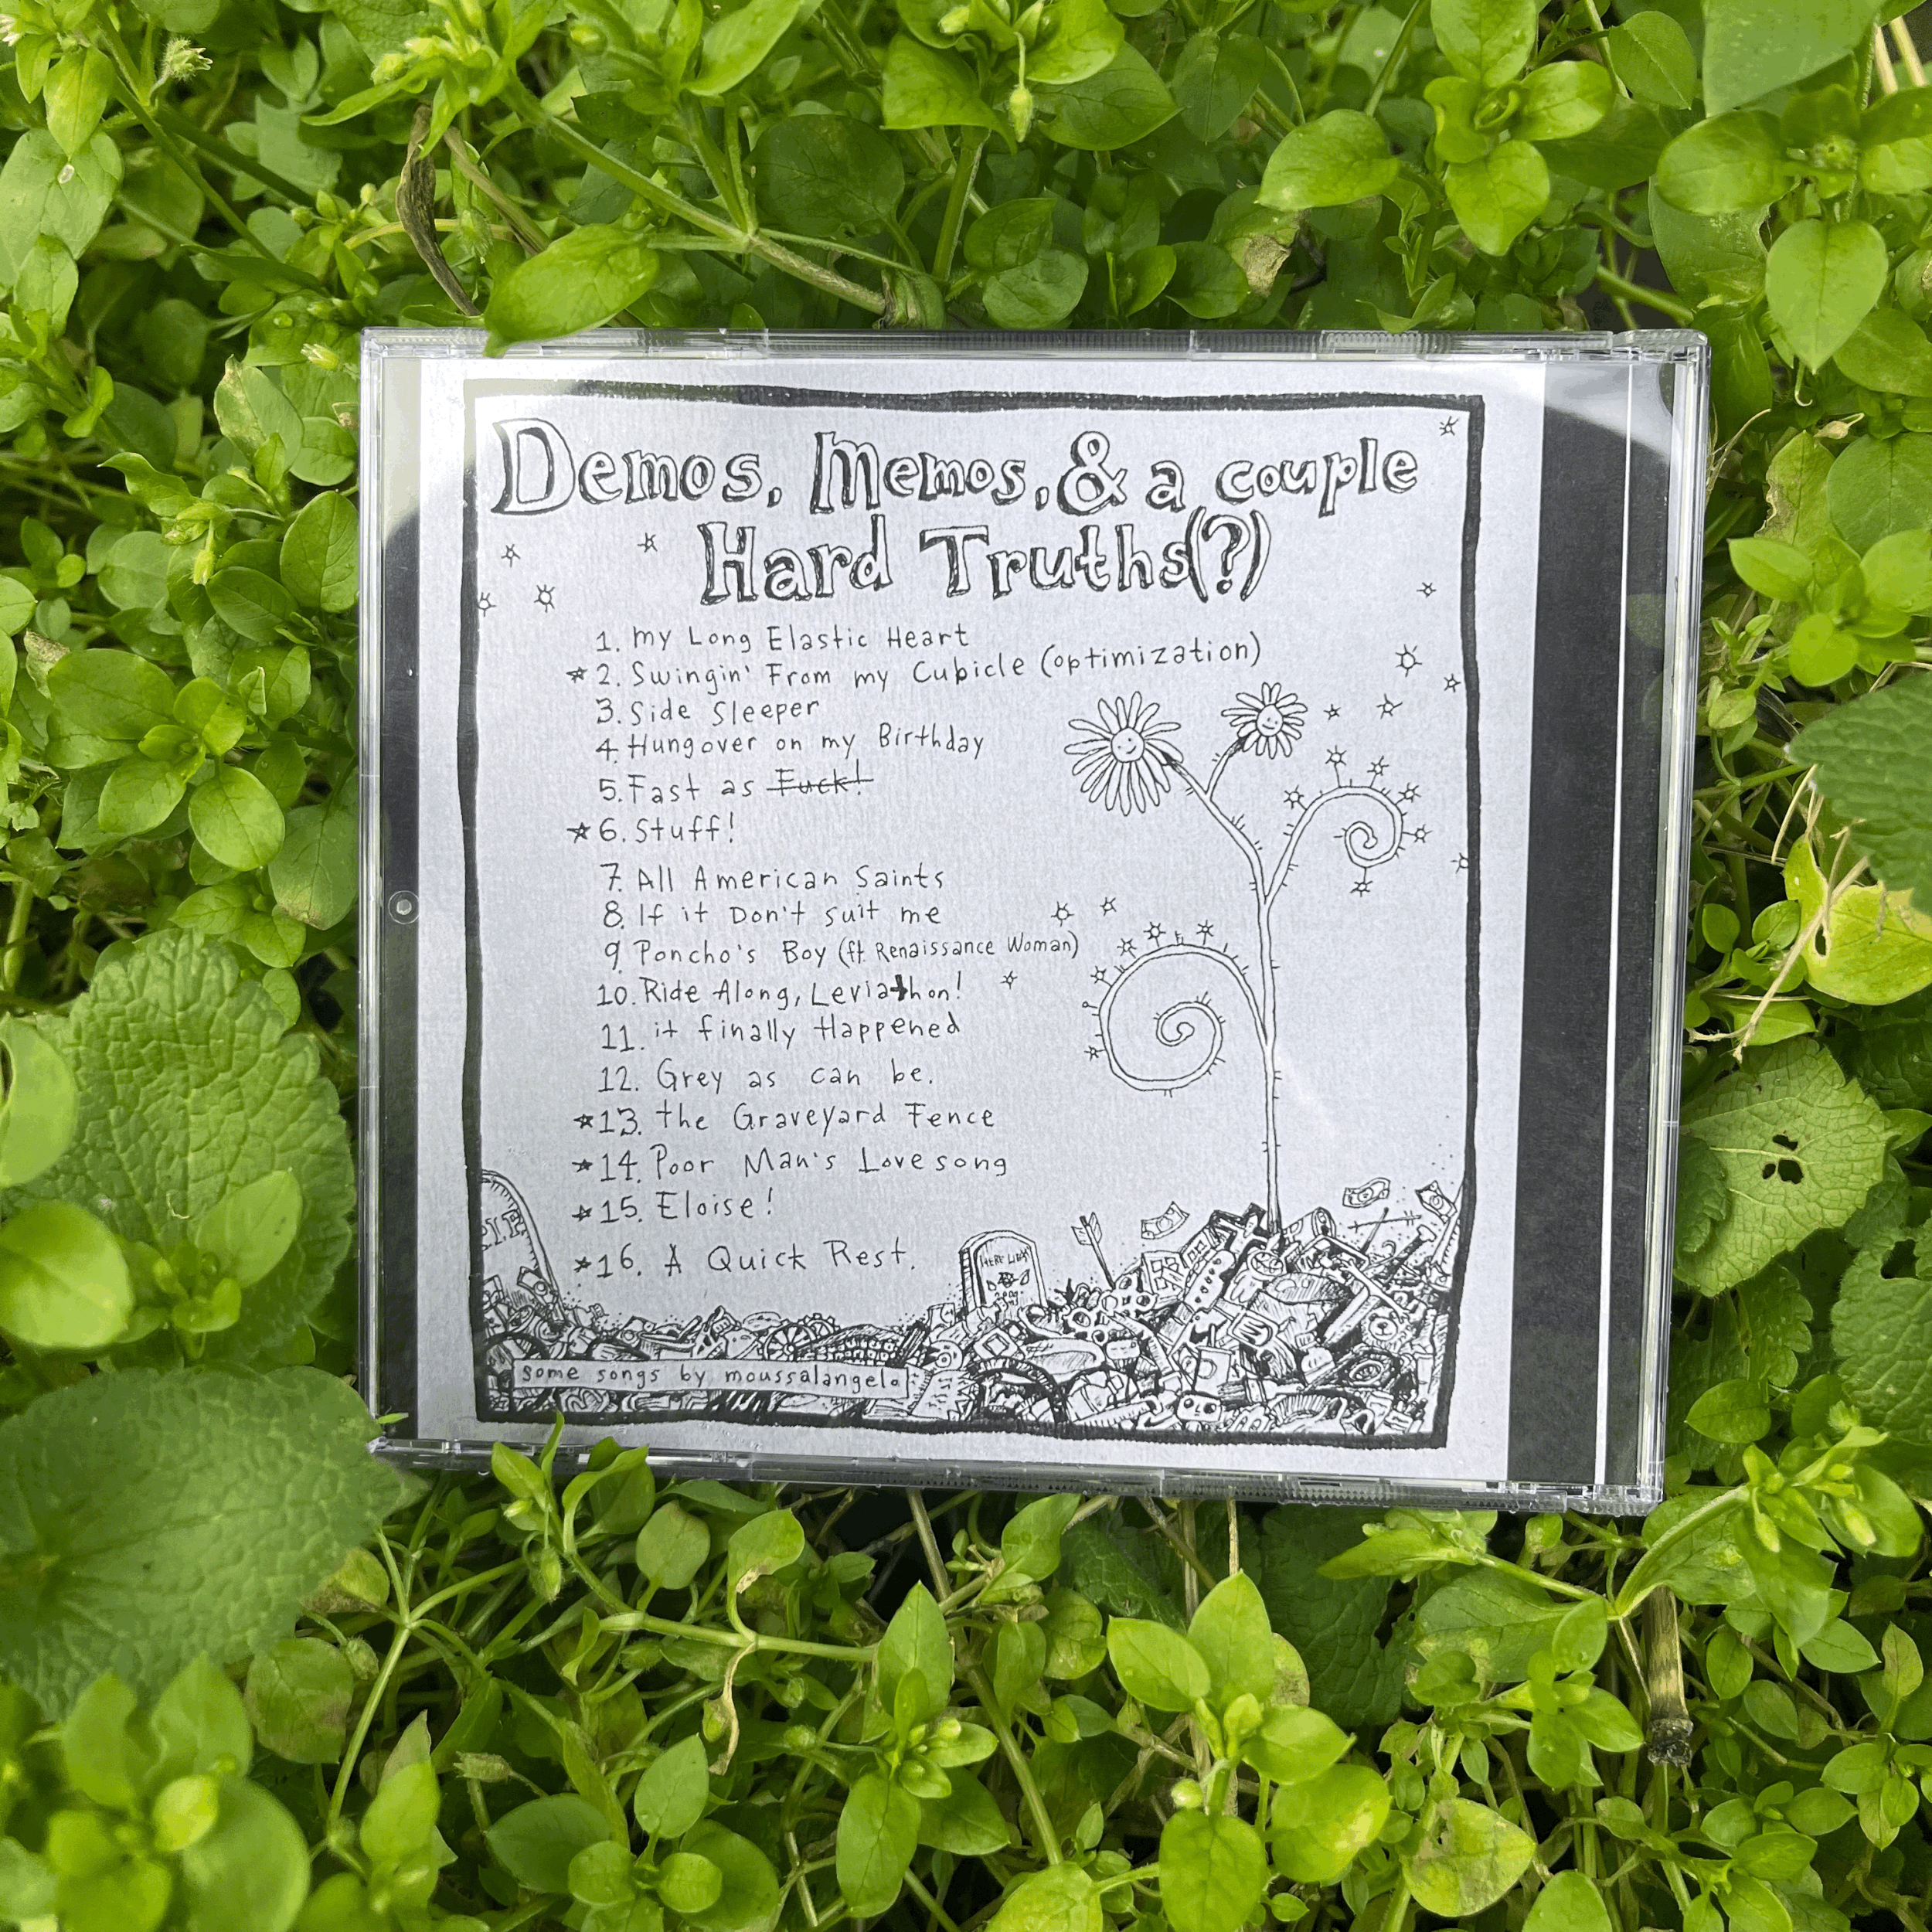 Demos, Memos, & a couple
Hard Truths(?)
1. my Long Elastic Heart
☆ 2. Swingin' From my Cubicle (optimization)
3. Side Sleeper
4. Hungover on my Birthday
5. Fast as Fuck!
☆ 6. Stuff!
7. All American Saints
8. If it Don't suit me
9. Poncho's Boy (ft Renaissance Woman)
10. Ride Along, Leviathon!
11. it finally Happened
12. Grey as can be.
☆ 13. the Graveyard Fence
☆ 14. Poor Man's Love song
☆ 15. Eloise!
☆ 16. A Quick Rest.
HERE LIES
some songs by moussalangelo